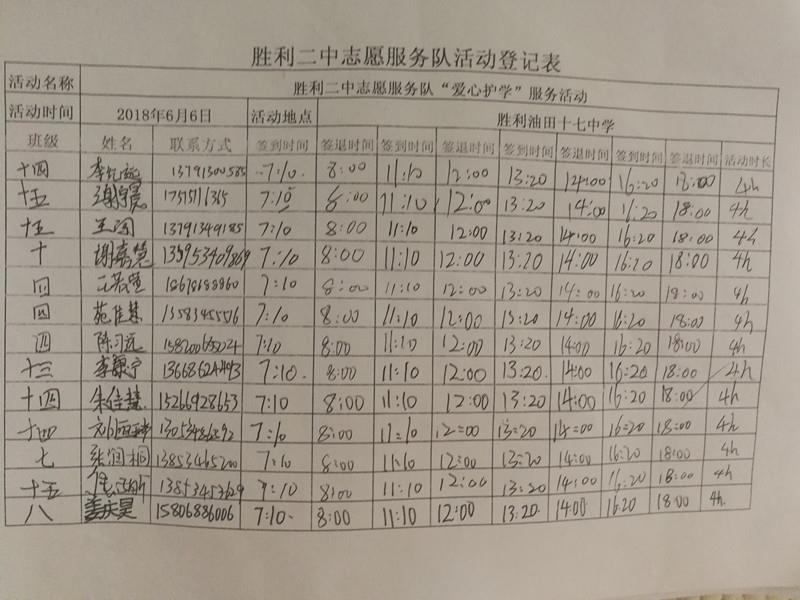 胜利二中志愿服务队活动登记表
活动名称 胜利二中志愿服务队“爱心护学”服务活动
活动时间 2018年6月6日 活动地点 胜利油田十七中学
班级 姓名 联系方式 签到时间 签退时间 签到时间 签退时间 签到时间 签退时间 签到时间 签退时间 活动时长
十四 李 13791300585 7:10 8:00 11:10 12:00 13:20 14:00 16:20 18:00 4h
十五 谢 7:10 8:00 11:10 12:00 13:20 14:00 16:20 18:00 4h
十五 王 13791349185 7:10 8:00 11:10 12:00 13:20 14:00 16:20 18:00 4h
十 谢嘉 13953409869 7:10 8:00 11:10 12:00 13:20 14:00 16:20 18:00 4h
四 18678688960 7:10 8:00 11:10 12:00 13:20 14:00 16:20 18:00 4h
四 苑佳慧 7:10 8:00 11:10 12:00 13:20 14:00 16:20 18:00 4h
四 陈习远 7:10 8:00 11:10 12:00 13:20 14:00 16:20 18:00 4h
十三 李颖宁 13668624493 7:10 8:00 11:10 12:00 13:20 14:00 16:20 18:00 4h
十四 朱佳慧 15266928653 7:10 8:00 11:10 12:00 13:20 14:00 16:20 18:00 4h
十四 13053486292 7:10 8:00 11:10 12:00 13:20 14:00 16:20 18:00 4h
七 张润桐 13853465200 7:10 8:00 11:10 12:00 13:20 14:00 16:20 18:00 4h
十五 13853453629 7:10 8:00 11:10 12:00 13:20 14:00 16:20 18:00 4h
八 姜庆昊 15806886006 7:10 8:00 11:10 12:00 13:20 14:00 16:20 18:00 4h